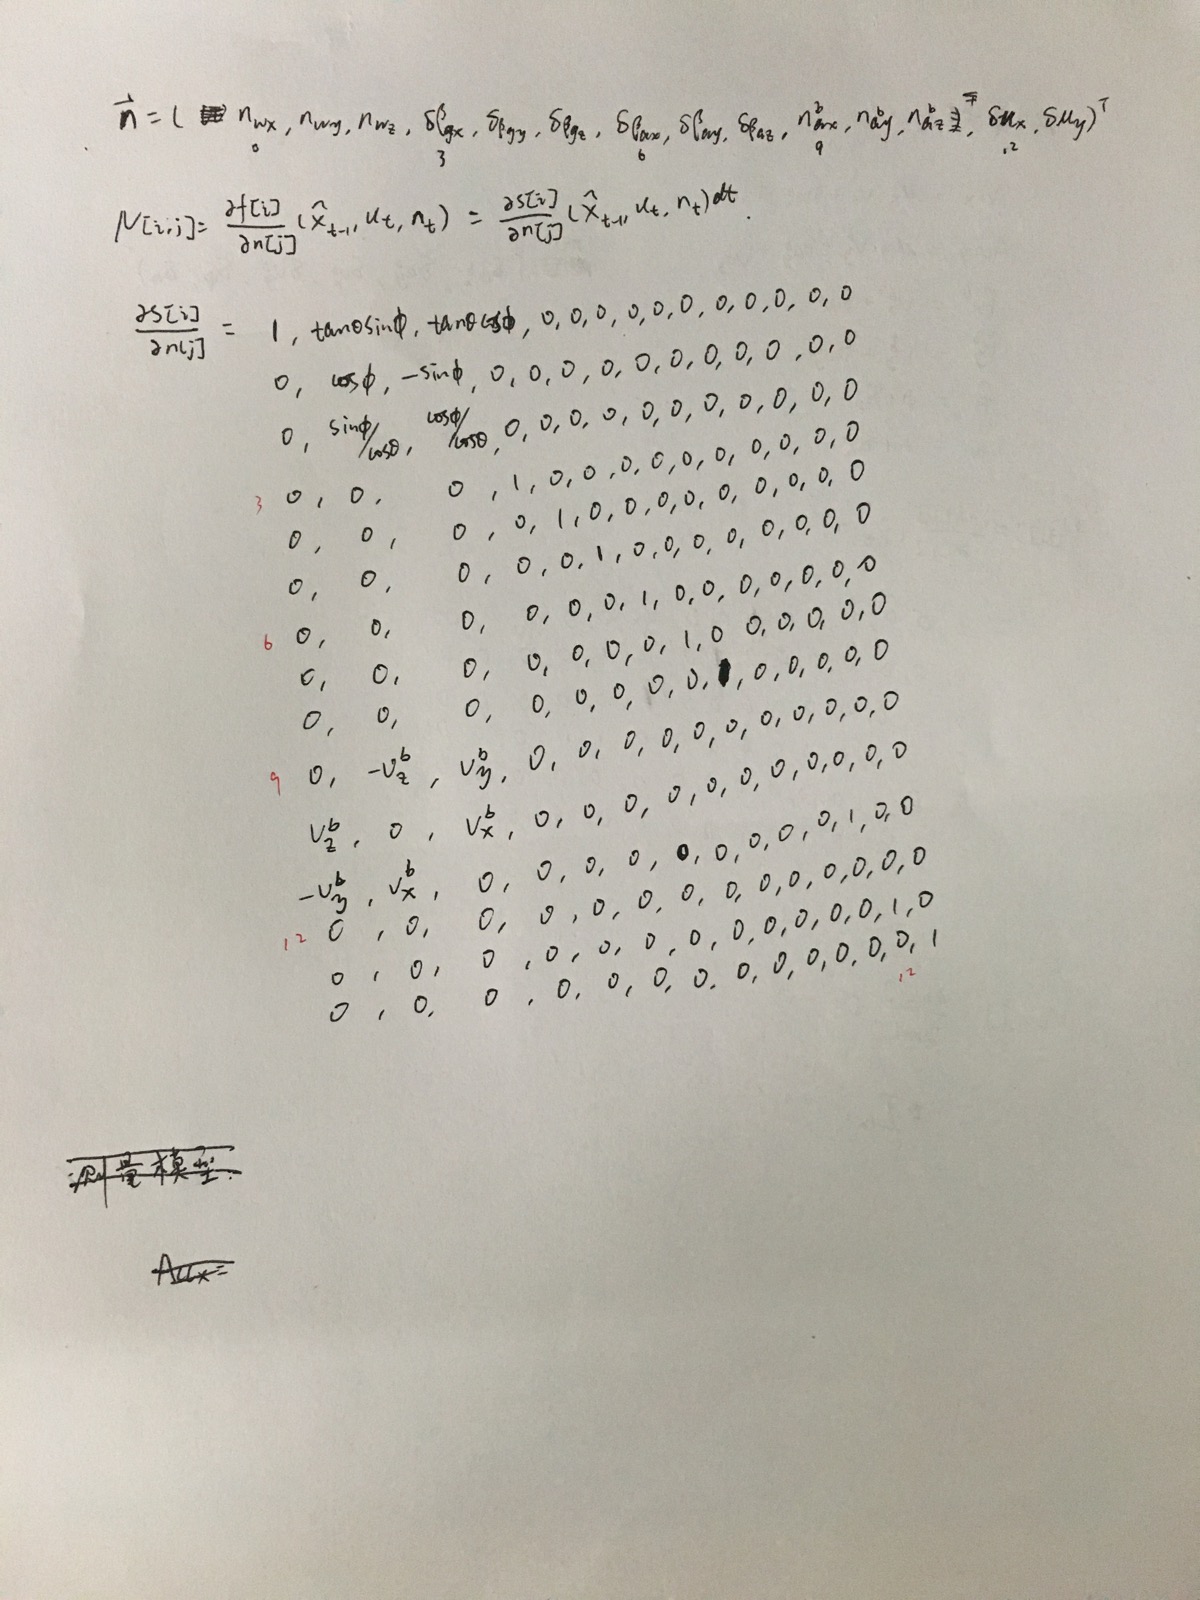 n⃗ = ( n_wx, n_wy, n_wz, δβ_gx, δβ_gy, δβ_gz, δβ_ax, δβ_ay, δβ_az, n^b_ax, n^b_ay, n^b_az, δμ_x, δμ_y)^T
0 3 6 9 12
N[i,j] = ∂f[i]/∂n[j] (x̂_t-1, u_t, n_t) = ∂s[i]/∂n[j] (x̂_t-1, u_t, n_t)dt.
∂s[i]/∂n[j] = 1, tanθsinϕ, tanθcosϕ, 0, 0, 0, 0, 0, 0, 0, 0, 0, 0, 0
0, cosϕ, -sinϕ, 0, 0, 0, 0, 0, 0, 0, 0, 0, 0, 0
0, sinϕ/cosθ, cosϕ/cosθ, 0, 0, 0, 0, 0, 0, 0, 0, 0, 0, 0
3 0, 0, 0, 1, 0, 0, 0, 0, 0, 0, 0, 0, 0, 0
0, 0, 0, 0, 1, 0, 0, 0, 0, 0, 0, 0, 0, 0
0, 0, 0, 0, 0, 1, 0, 0, 0, 0, 0, 0, 0, 0
6 0, 0, 0, 0, 0, 0, 1, 0, 0, 0, 0, 0, 0, 0
0, 0, 0, 0, 0, 0, 0, 1, 0 0, 0, 0, 0, 0
0, 0, 0, 0, 0, 0, 0, 0, 1, 0, 0, 0, 0, 0
9 0, -v^b_z, v^b_y, 0, 0, 0, 0, 0, 0, 0, 0, 0, 0, 0
v^b_z, 0, v^b_x, 0, 0, 0, 0, 0, 0, 0, 0, 0, 0
-v^b_y, v^b_x, 0, 0, 0, 0, 0, 0, 0, 0, 0, 1, 0, 0
12 0, 0, 0, 0, 0, 0, 0, 0, 0, 0, 0, 0, 0, 0
0, 0, 0, 0, 0, 0, 0, 0, 0, 0, 0, 0, 1, 0
0, 0, 0, 0, 0, 0, 0, 0, 0, 0, 0, 0, 0, 1
12
测量模型.